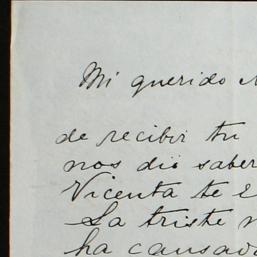 Mi querido
de recibir tu
nos dió saber
Vicenta te
La triste
ha causado